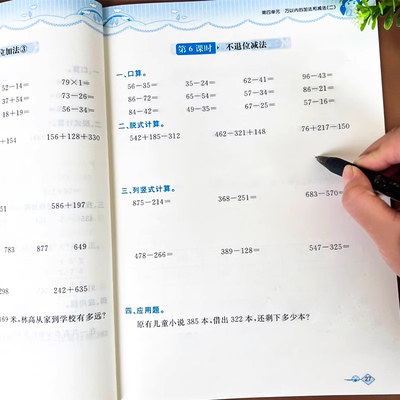 位加法③
52-14=
79×1=
54+13=
73-26=
18+19=
56-34=
156+128+330
586+197
783 877 649
242+635
169 米,林高从家到学校有多远?
第四单元 万以内的加法和减法(二)
第 6 课时 不退位减法
一、口算。
56-35= 35-24= 62-41= 96-43=
86-72= 65-54= 57-34= 86-21=
84-42= 49-35= 67-25= 57-16=
二、脱式计算。
542+185-312 462-321+148 76+217-150
三、列竖式计算。
875-214= 368-251= 683-570=
478-266= 389-128= 547-325=
四、应用题。
原有儿童小说 385 本,借出 322 本,还剩下多少本?
27